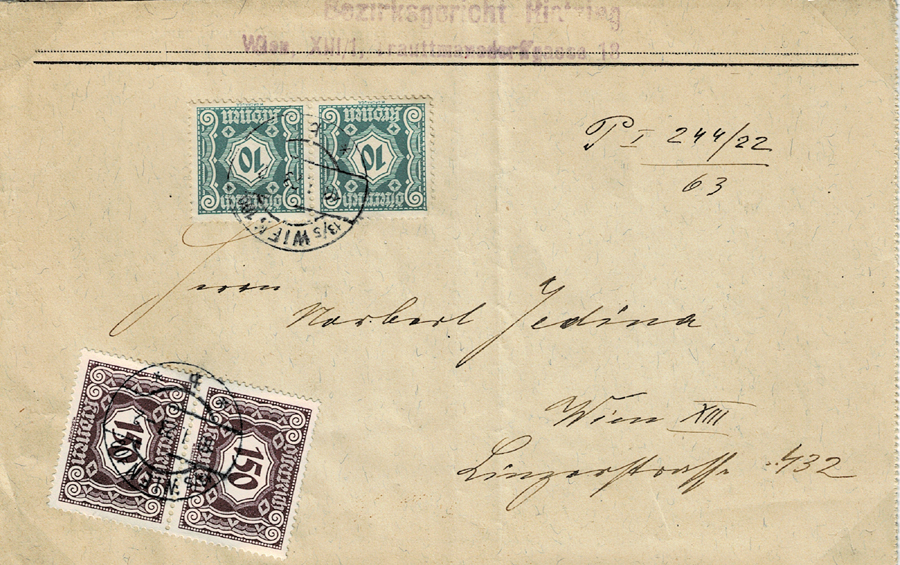 Bezirksgericht Hietzing
Wien, XIII/1, Trauttmansdorffgasse 18
P I 244/22
63
Kronen 10 Kronen 10
13/5 WIEN
Herrn
Norbert Jedina
Wien XIII
Linzerstrasse 432
Kronen 150 150
WIEN